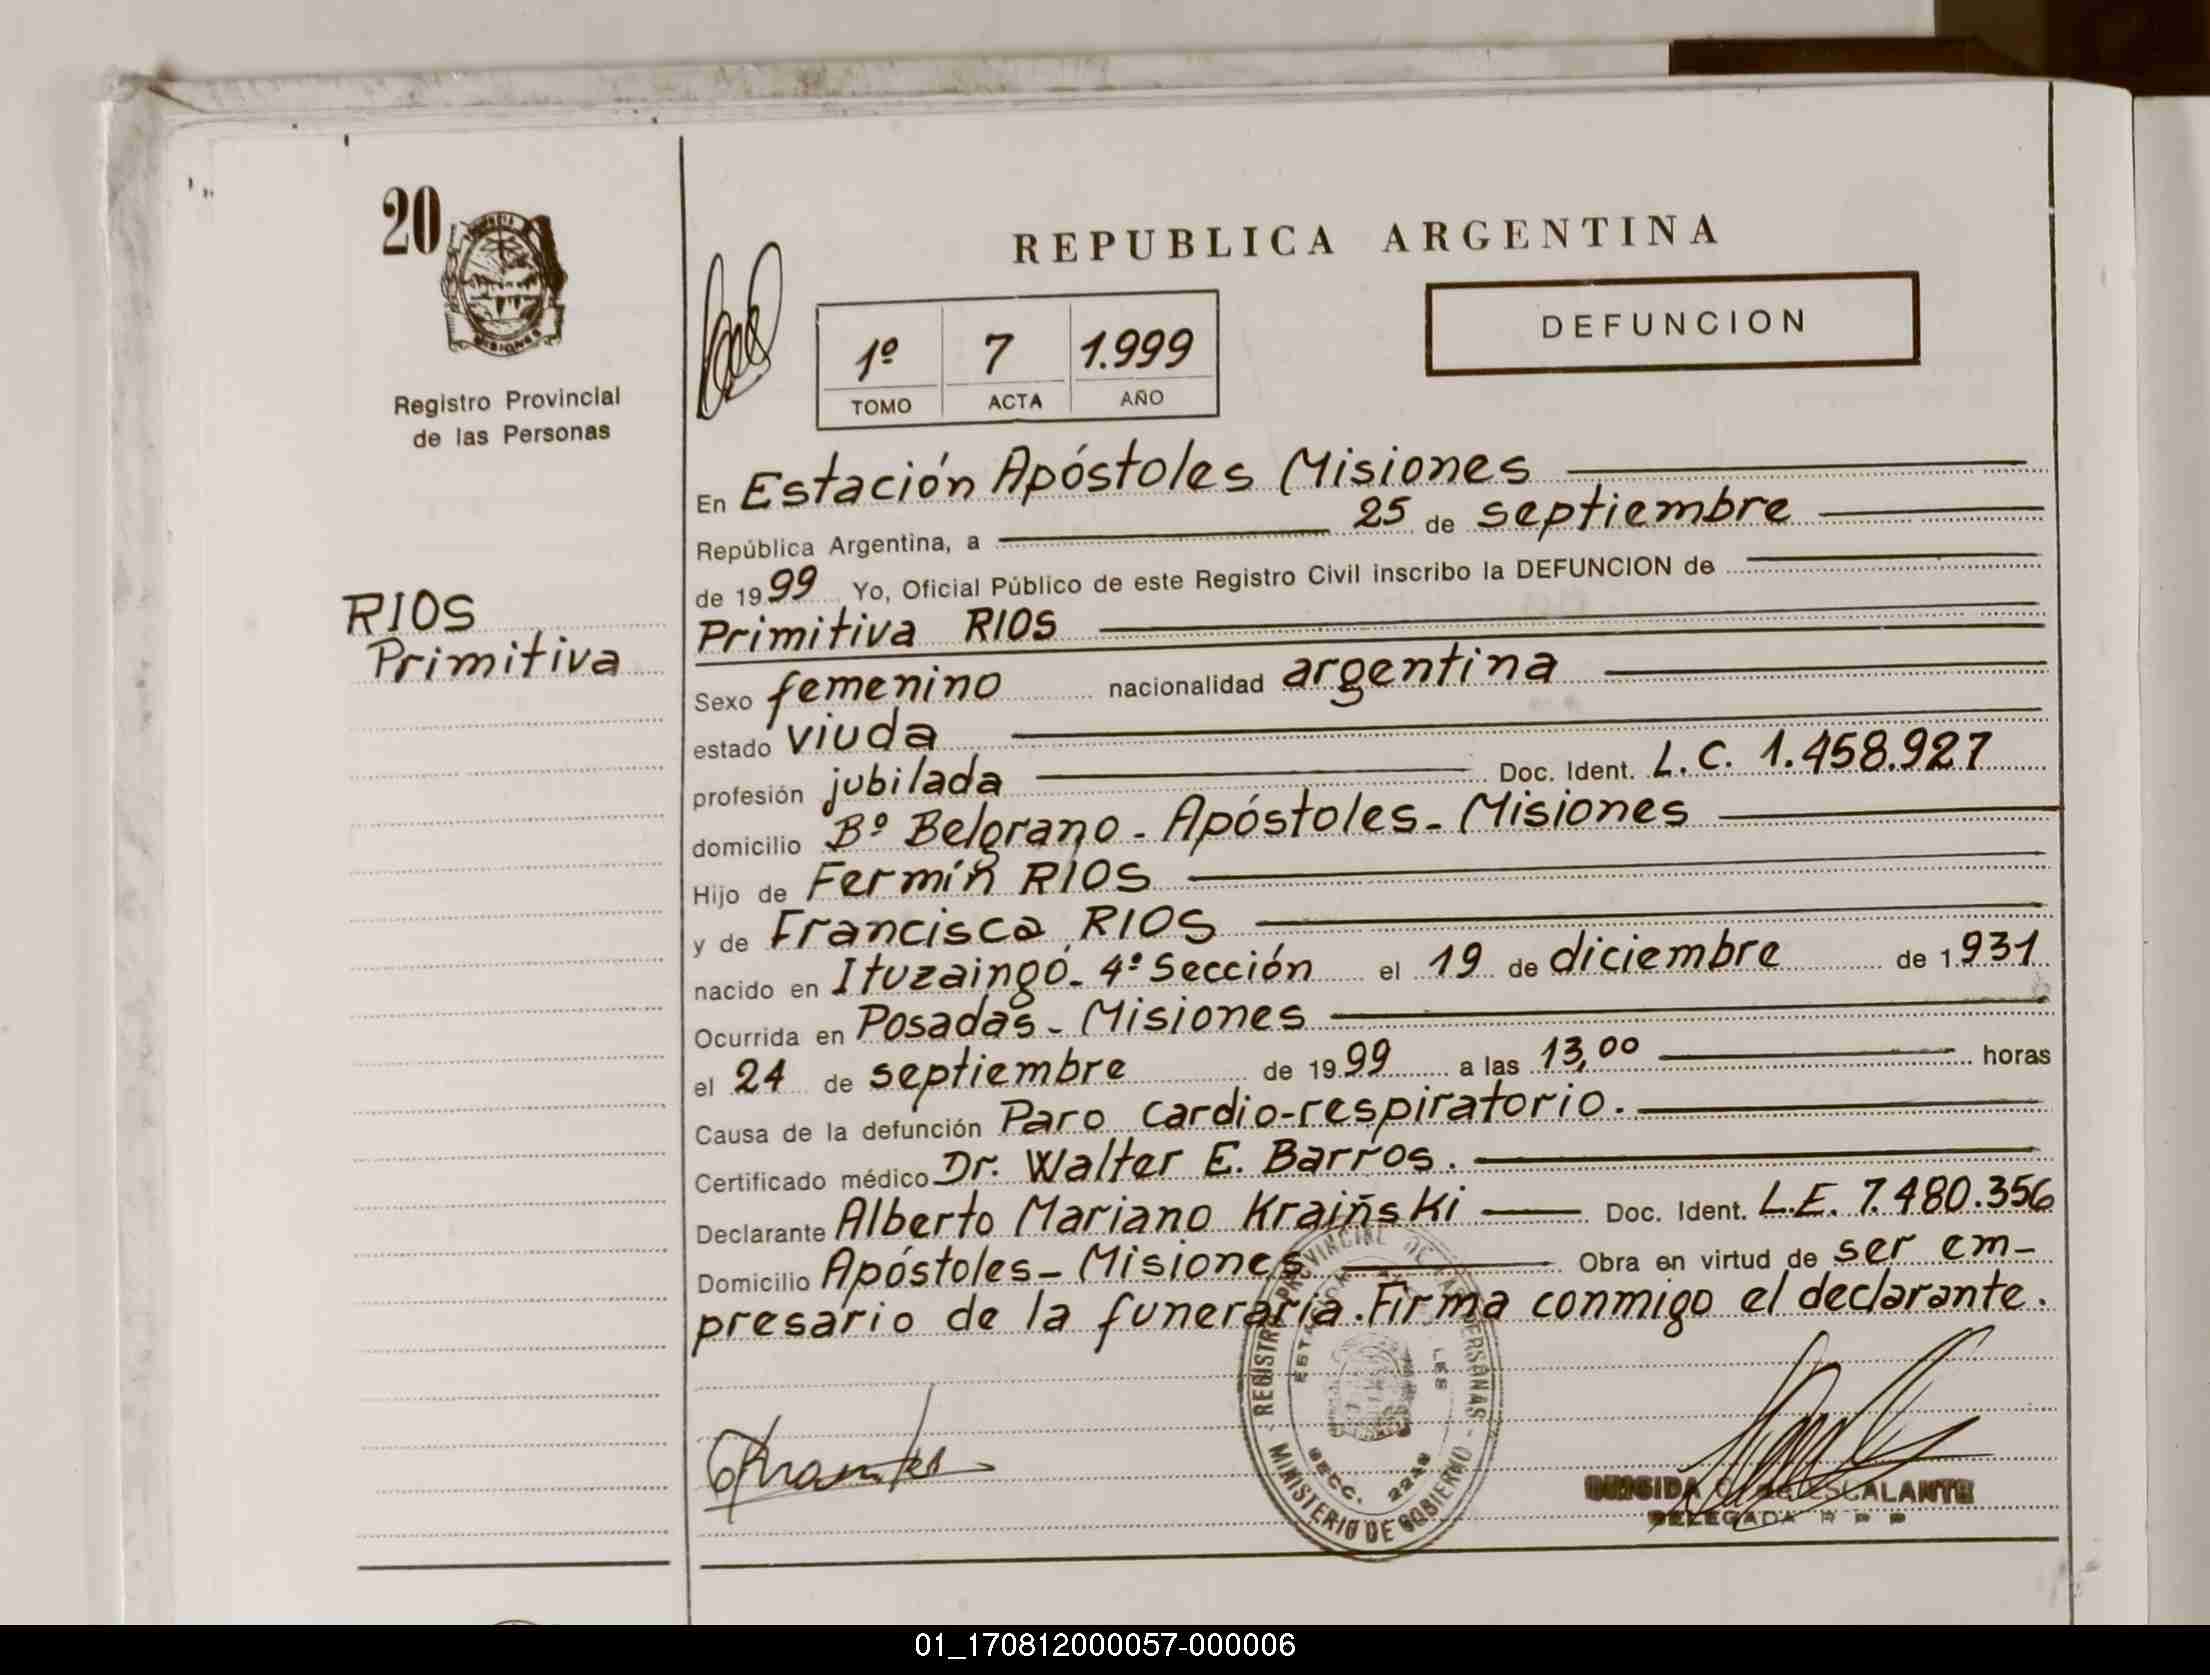 20
Registro Provincial
de las Personas
RIOS
Primitiva
REPUBLICA ARGENTINA
DEFUNCION
1º 7 1.999
TOMO ACTA AÑO
En Estación Apóstoles Misiones
República Argentina, a 25 de septiembre
de 1999 Yo, Oficial Público de este Registro Civil inscribo la DEFUNCION de
Primitiva RIOS
Sexo femenino nacionalidad argentina
estado viuda
profesión jubilada Doc. Ident. L.C. 1.458.927
domicilio Bº Belgrano - Apóstoles - Misiones
Hijo de Fermín RIOS
y de Francisca RIOS
nacido en Ituzaingó - 4º Sección el 19 de diciembre de 1.931
Ocurrida en Posadas - Misiones
el 24 de septiembre de 1999 a las 13,00 horas
Causa de la defunción Paro cardio-respiratorio.
Certificado médico Dr. Walter E. Barros.
Declarante Alberto Mariano Kraiñski Doc. Ident. L.E. 7.480.356
Domicilio Apóstoles - Misiones Obra en virtud de ser em-
presario de la funeraria. Firma conmigo el declarante.
REGISTRO PROVINCIAL DE LAS PERSONAS - MINISTERIO DE GOBIERNO
SECC. 2248
ESCALANTE
DELEGADA
01_170812000057-000006